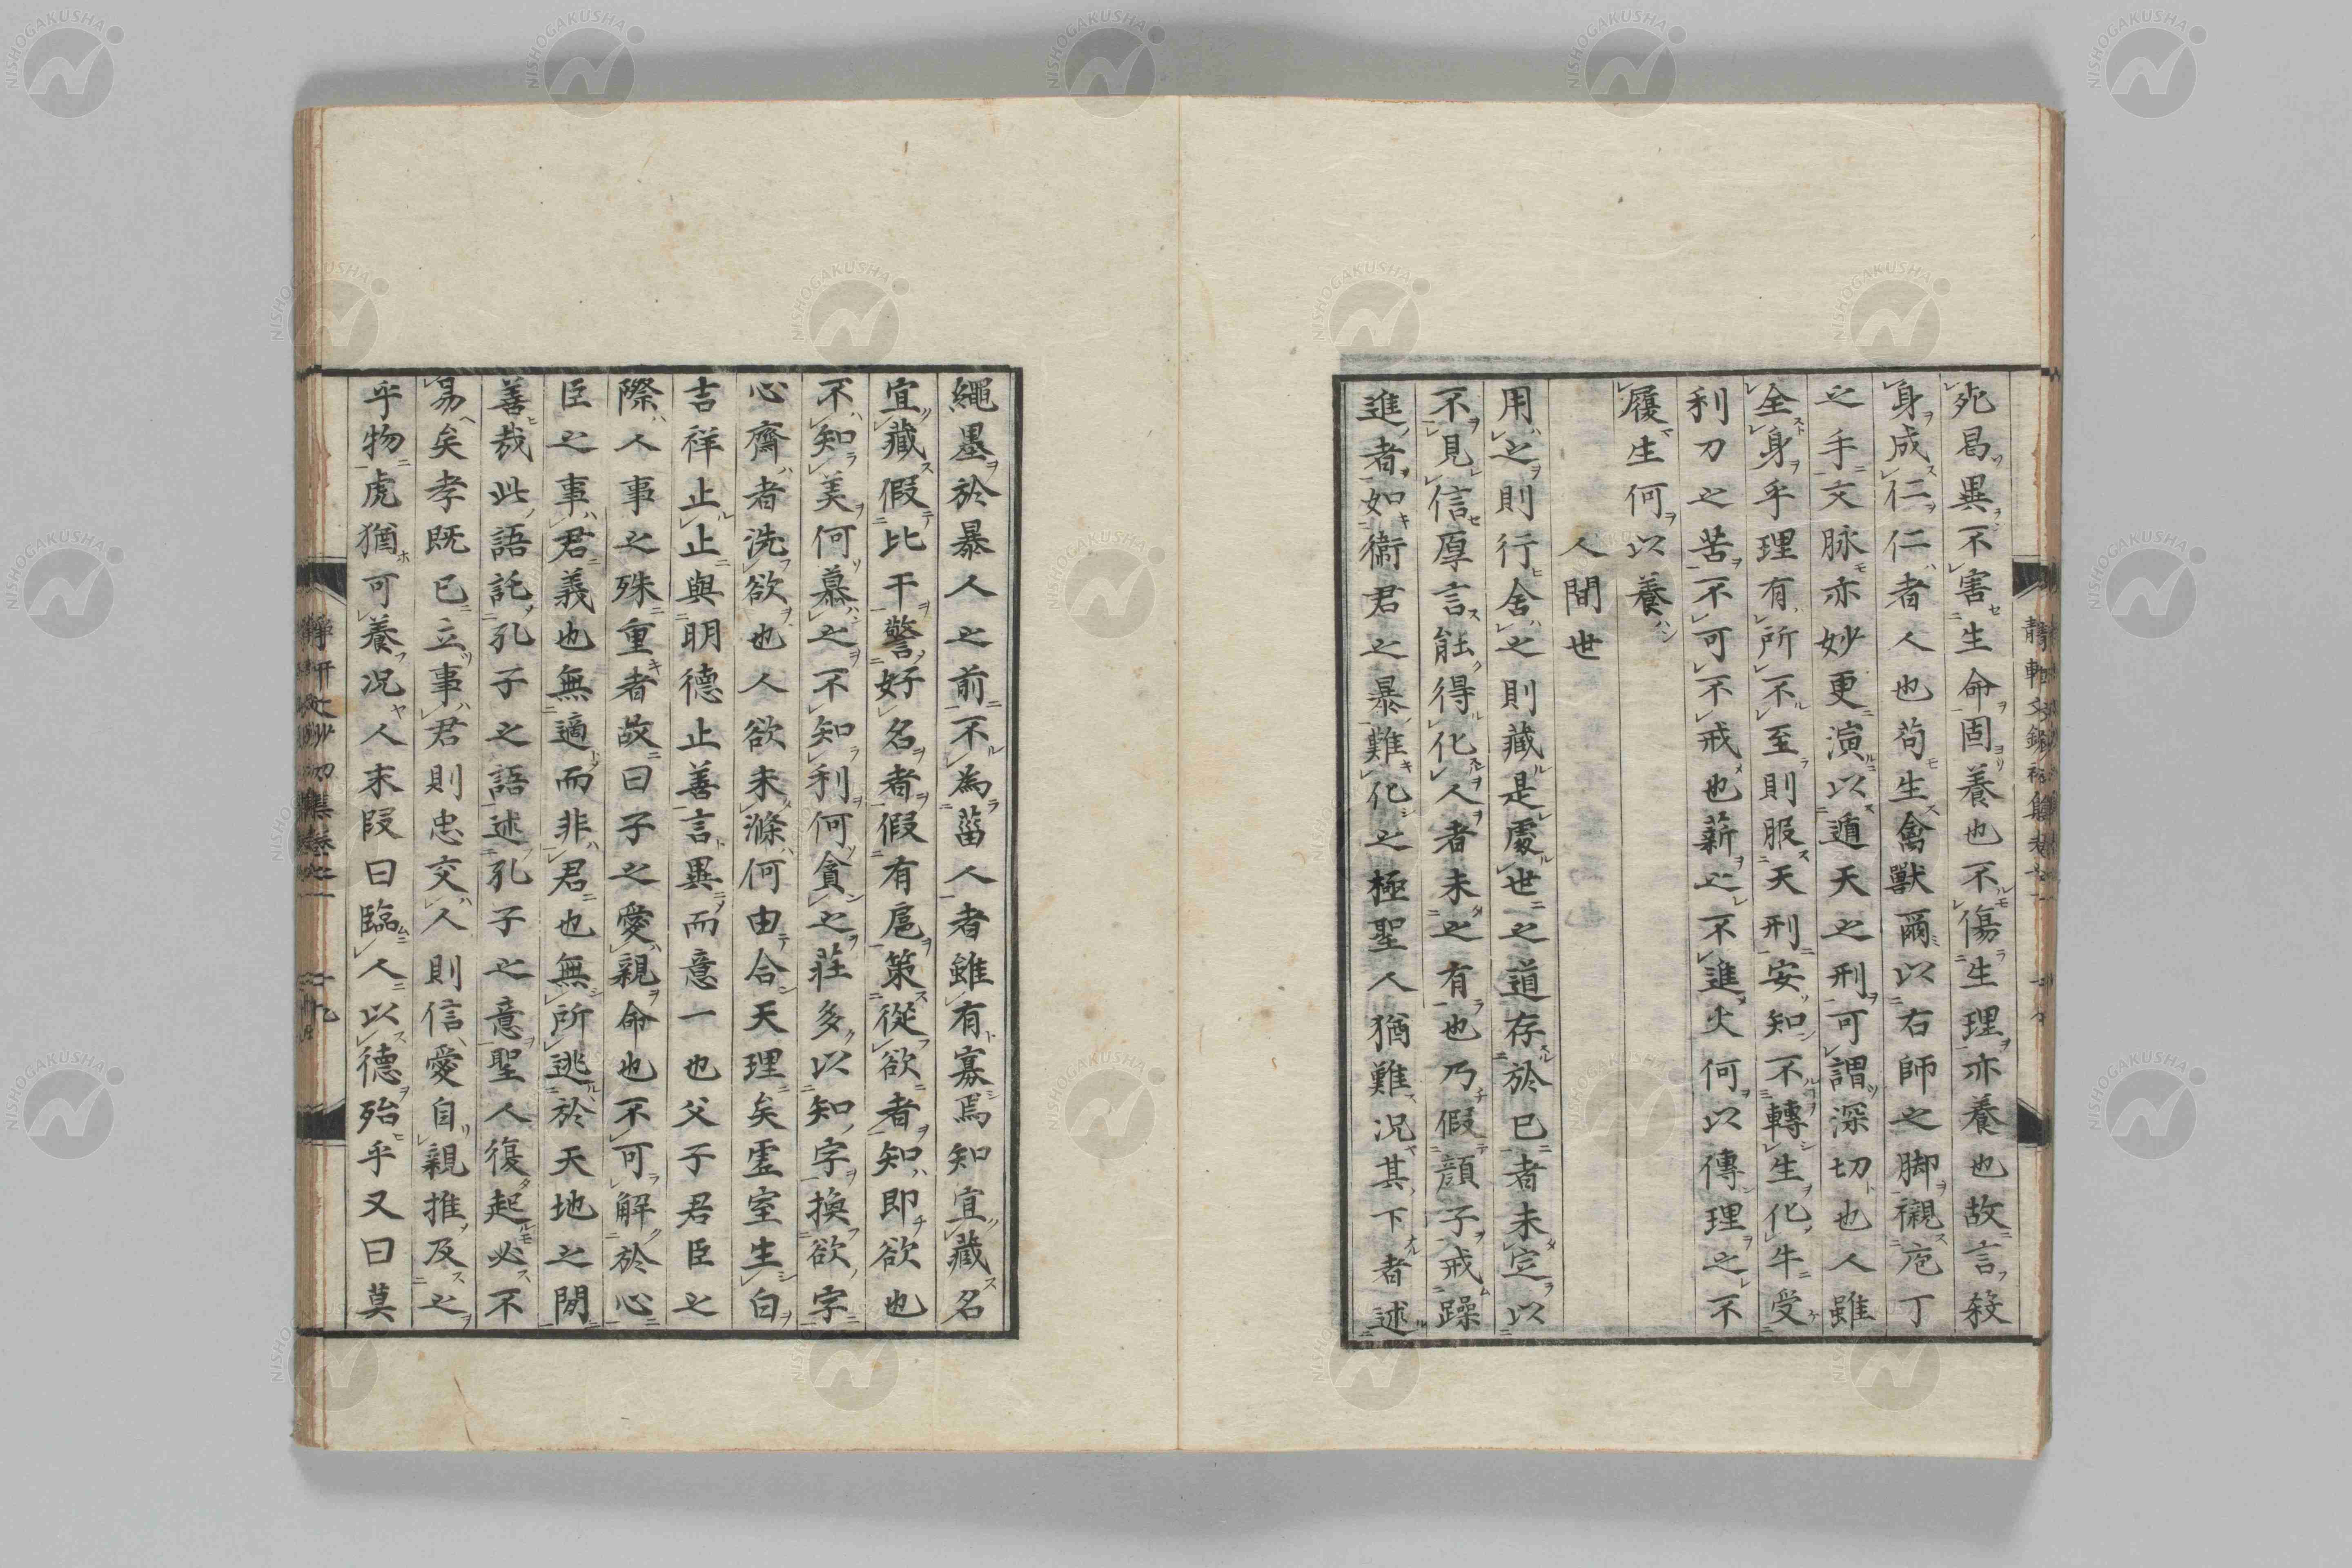 死曷異不害生命固養也不傷生理亦養也故言殺
身成仁仁者人也苟生禽獸爾以右師之脚襯庖丁
之手文脉亦妙更演以遁天之刑可謂深切也人雖
全身乎理有所不至則服天刑安知不轉生化牛受
利刀之苦不可不戒也薪之不進火何以傳理之不
履生何以養
人間世
用之則行舍之則藏是處世之道存於已者未定以
不見信厚言能得化人者未之有也乃假顔子戒躁
進者如衞君之暴難化之極聖人猶難况其下者述
繩墨於暴人之前不為菑人者雖有寡焉知宜藏名
宜藏假比干警好名者假有扈策從欲者知即欲也
不知美何慕之不知利何貪之莊多以知字換欲字
心齋者洗欲也人欲未滌何由合天理矣虛室生白
吉祥止止與明德止善言異而意一也父子君臣之
際人事之殊重者故曰子之愛親命也不可解於心
臣之事君義也無適而非君也無所逃於天地之間
善哉此語託孔子之語述孔子之意聖人復起必不
易矣孝既已立事君則忠交人則信愛自親推及之
乎物虎猶可養况人末段曰臨人以德殆乎又曰莫
NISHOGAKUSHA